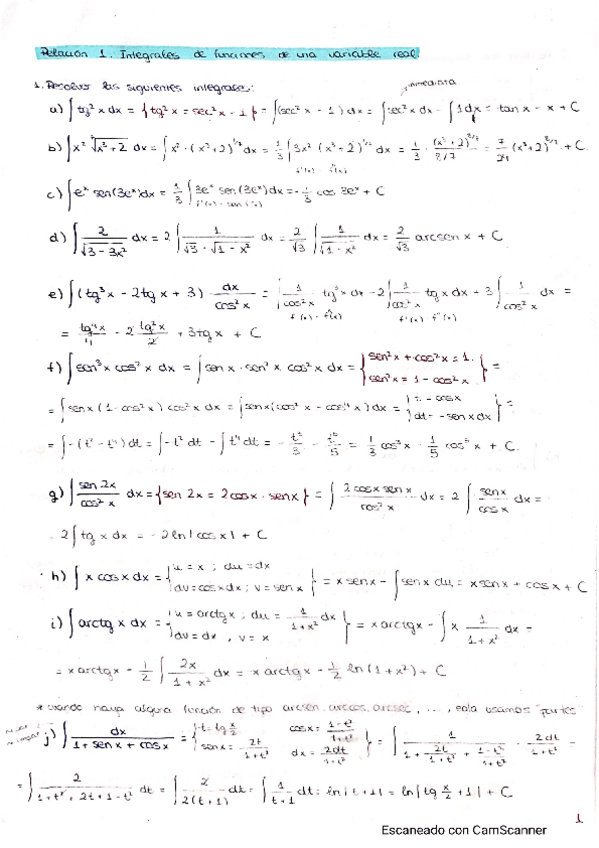 Relación 1. Integrales de funciones de una variable real.
1. Resolver las siguientes integrales: inmediata
a) ∫tg² x dx = {tg² x = sec² x - 1} = ∫(sec² x - 1) dx = ∫sec² x dx - ∫1dx = tan x - x + C
b) ∫x² ⁷√(x³+2) dx = ∫x² · (x³+2)^(1/7) dx = 1/3 ∫3x² (x³+2)^(1/7) dx = 1/3 · (x³+2)^(8/7) / (8/7) = 7/24 (x³+2)^(8/7) + C
c) ∫eˣ sen(3eˣ)dx = 1/3 ∫3eˣ sen(3eˣ)dx = -1/3 cos 3eˣ + C
d) ∫ 2/√(3-3x²) dx = 2 ∫ 1/(√3 · √(1-x²)) dx = 2/√3 ∫ 1/√(1-x²) dx = 2/√3 arcsen x + C
e) ∫(tg³x - 2tgx + 3) · dx/cos²x = ∫ 1/cos²x tg³x dx - 2∫ 1/cos²x tgx dx + 3∫ 1/cos²x dx =
= tg⁴x/4 - 2 tg²x/2 + 3tgx + C
f) ∫sen³x cos²x dx = ∫sen x · sen²x cos²x dx = {sen²x + cos²x = 1. sen²x = 1 - cos²x} =
= ∫senx (1 - cos²x) cos²x dx = ∫senx(cos²x - cos⁴x) dx = {t = cosx dt = -senx dx} =
= ∫-(t² - t⁴) dt = ∫-t² dt - ∫t⁴ dt = - t³/3 - t⁵/5 = 1/3 cos³x · 1/5 cos⁵x + C.
g) ∫ sen 2x/cos²x dx = {sen 2x = 2cosx · senx} = ∫ 2cosx senx/cos²x dx = 2 ∫ senx/cosx dx =
2∫tg x dx = -2ln|cosx| + C
h) ∫x cosx dx = {u = x ; du = dx dv = cosx dx ; v = senx} = x senx - ∫senx du = x senx + cosx + C
i) ∫arctg x dx = {u = arctgx ; du = 1/(1+x²) dx dv = dx , v = x} = x arctgx - ∫x 1/(1+x²) dx =
= x arctgx - 1/2 ∫ 2x/(1+x²) dx = x arctgx - 1/2 ln(1+x²) + C
* cuando haya alguna función de tipo arcsen, arccos, arcsec, ..., sola usamos partes
j) ∫ dx/(1+senx+cosx) = {t = tg x/2 cosx = (1-t²)/(1+t²) senx = 2t/(1+t²) dx = 2dt/(1+t²)} = ∫ 1/(1 + 2t/(1+t²) + (1-t²)/(1+t²)) · 2dt/(1+t²) =
= ∫ 2/(1+t²+2t+1-t²) dt = ∫ 2/(2(t+1)) dt = ∫ 1/(t+1) dt = ln|t+1| = ln|tg x/2 + 1| + C
1
Escaneado con CamScanner